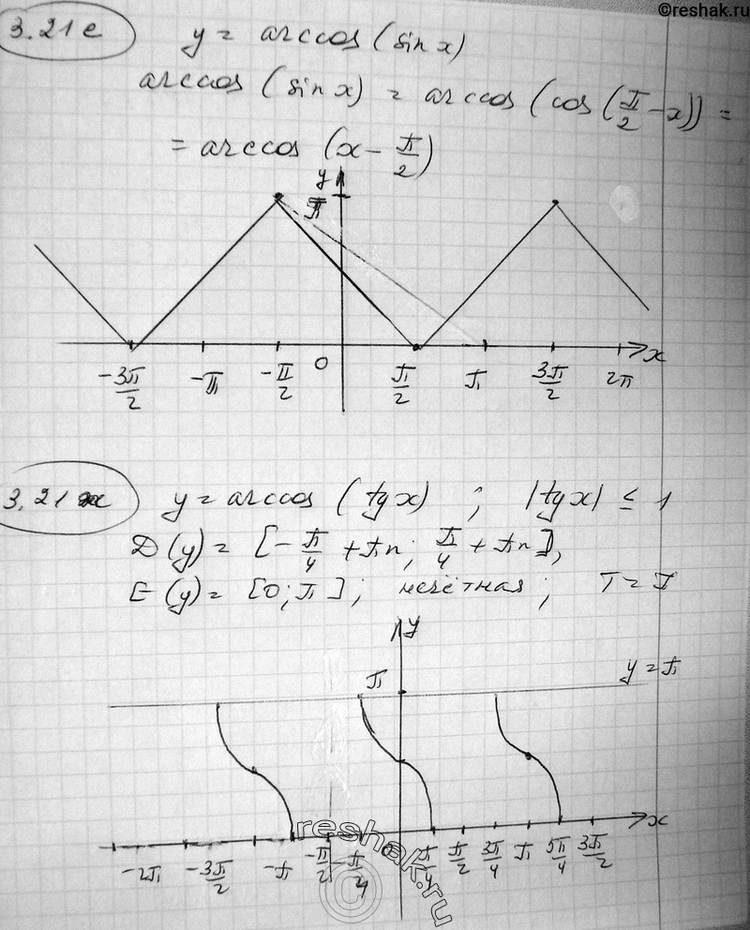 ©reshak.ru
3.21 е y = arccos (sin x)
arccos (sin x) = arccos (cos (π/2 - x)) =
= arccos (x - π/2)
y
π
-3π/2 -π -π/2 0 π/2 π 3π/2 2π x
3.21 ж y = arccos (tg x) ; |tg x| ≤ 1
D(y) = [-π/4 + πn; π/4 + πn],
E(y) = [0; π]; нечётная; T = π
y
π y = π
-2π -3π/2 -π -π/2 -π/4 0 π/4 π/2 3π/4 π 5π/4 3π/2 x
reshak.ru
©